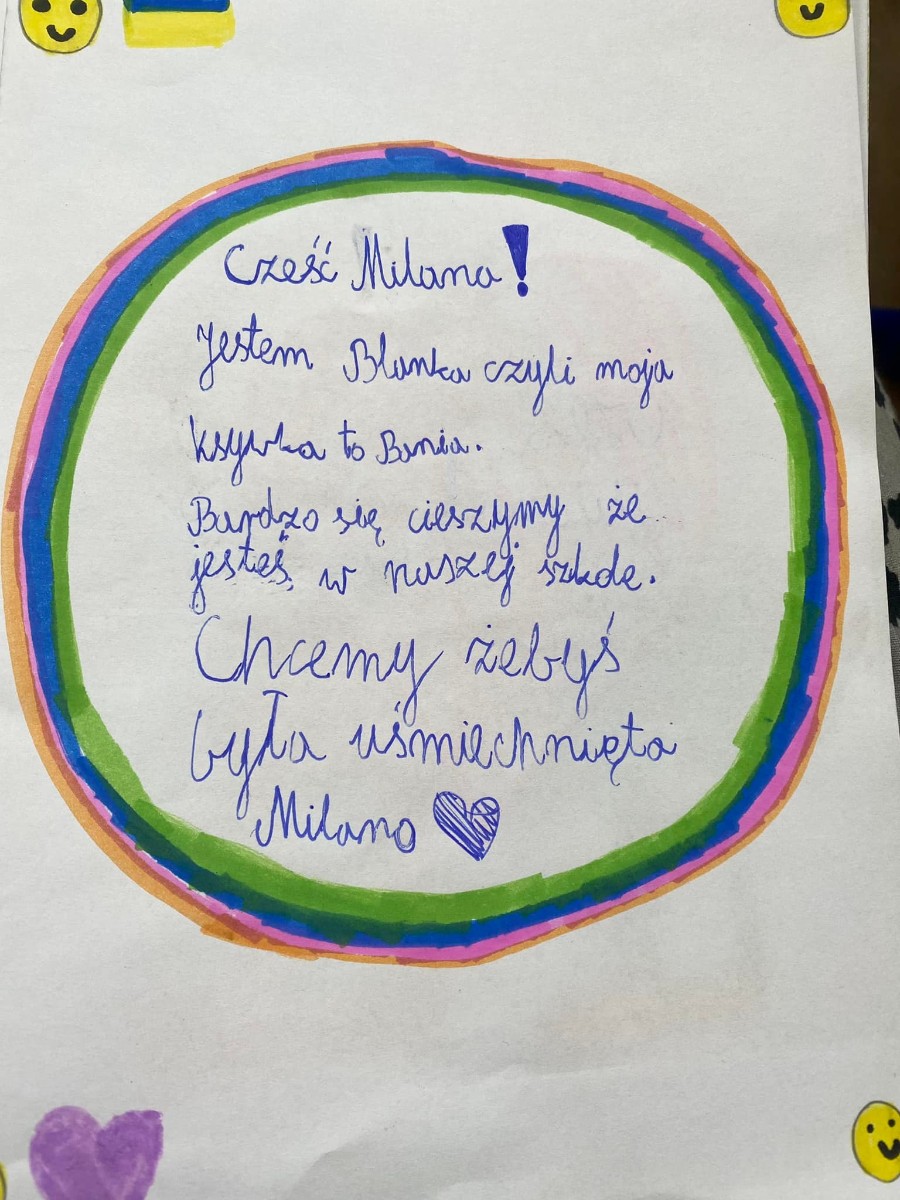 Cześć Milana!
Jestem Blanka czyli moja
ksywka to Bania.
Bardzo się cieszymy że
jesteś w naszej szkole.
Chcemy żebyś
była uśmiechnięta
Milano